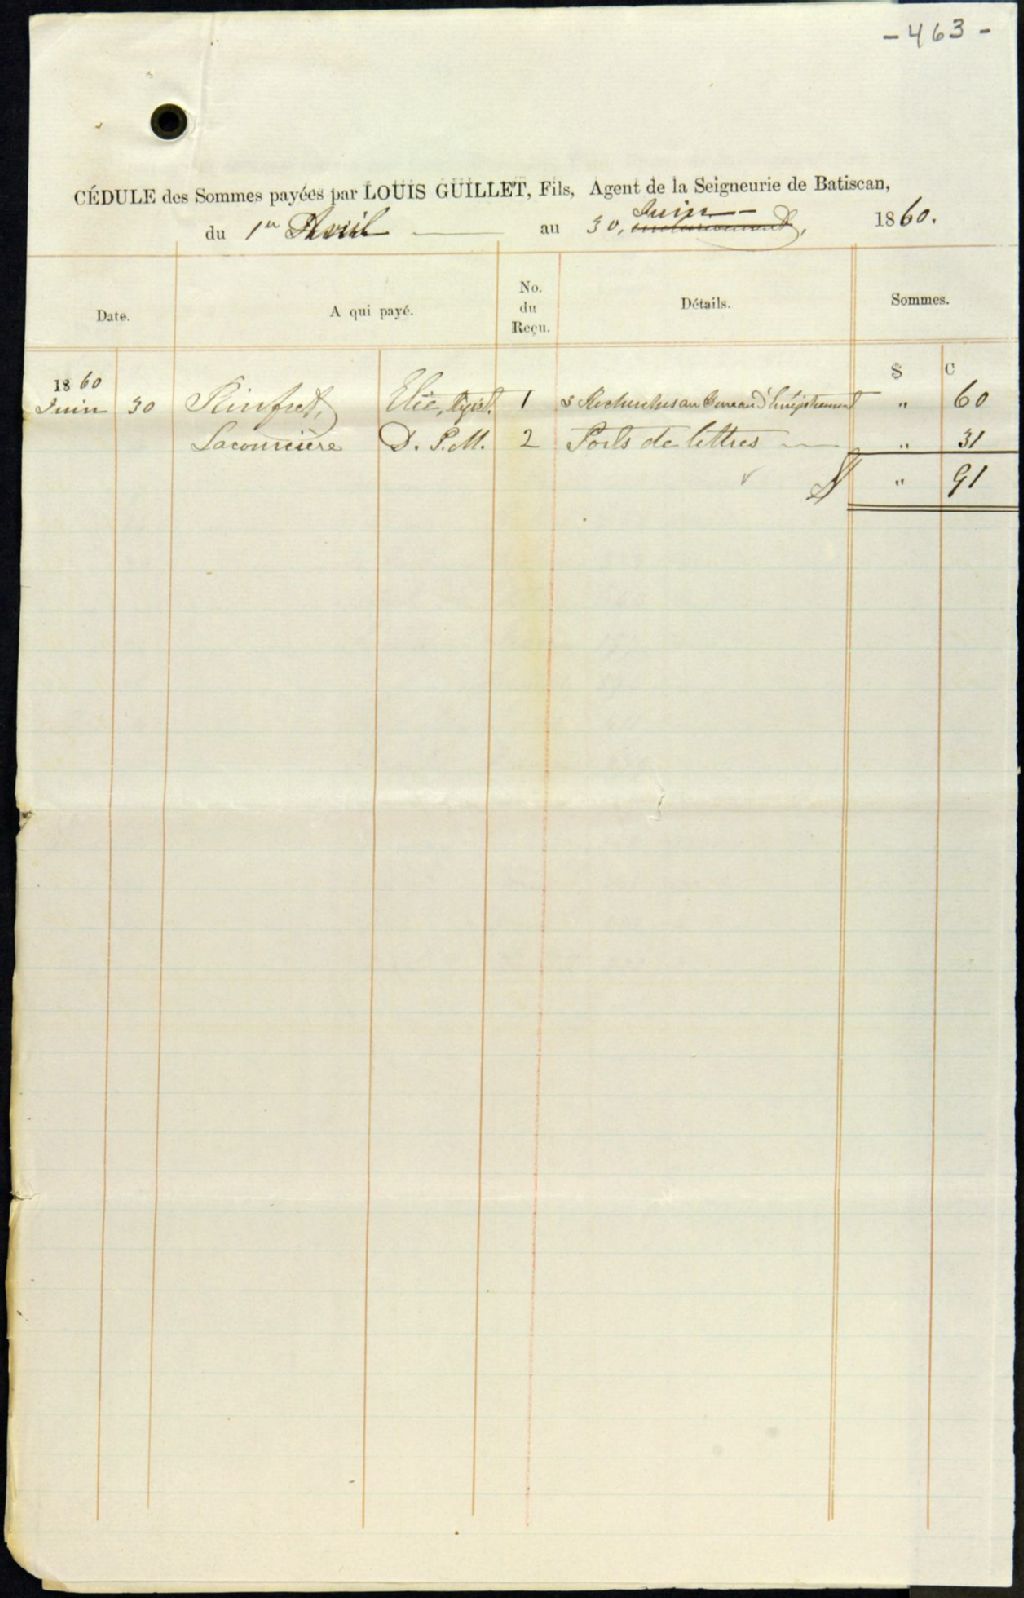 - 463 -
CÉDULE des Sommes payées par LOUIS GUILLET, Fils, Agent de la Seigneurie de Batiscan,
du 1er Avril au 30, Juin 1860.
Date. A qui payé. No. du Reçu. Détails. Sommes.
1860 $ C
Juin 30 Rinfret, Elie, Régist. 1 3 Recherches au Bureau d'Enrégistrement " 60
Lacourcière D. P. M. 2 Ports de lettres " 31
$ " 91